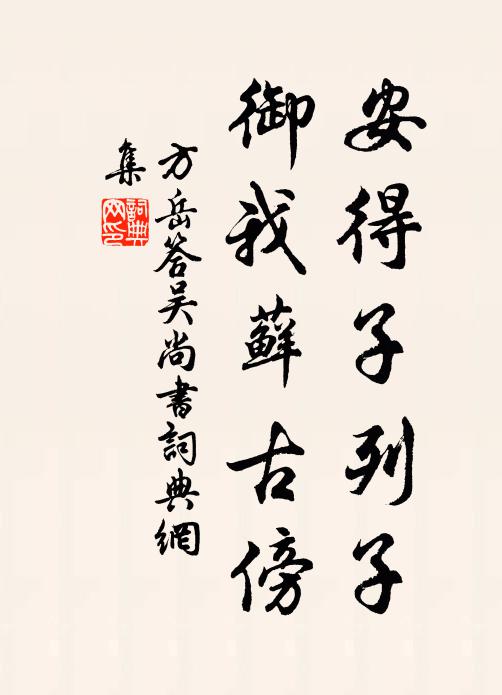 安得子列子
御我蘚古傍
方岳答吳尚書詞典網
集
詞典
网印